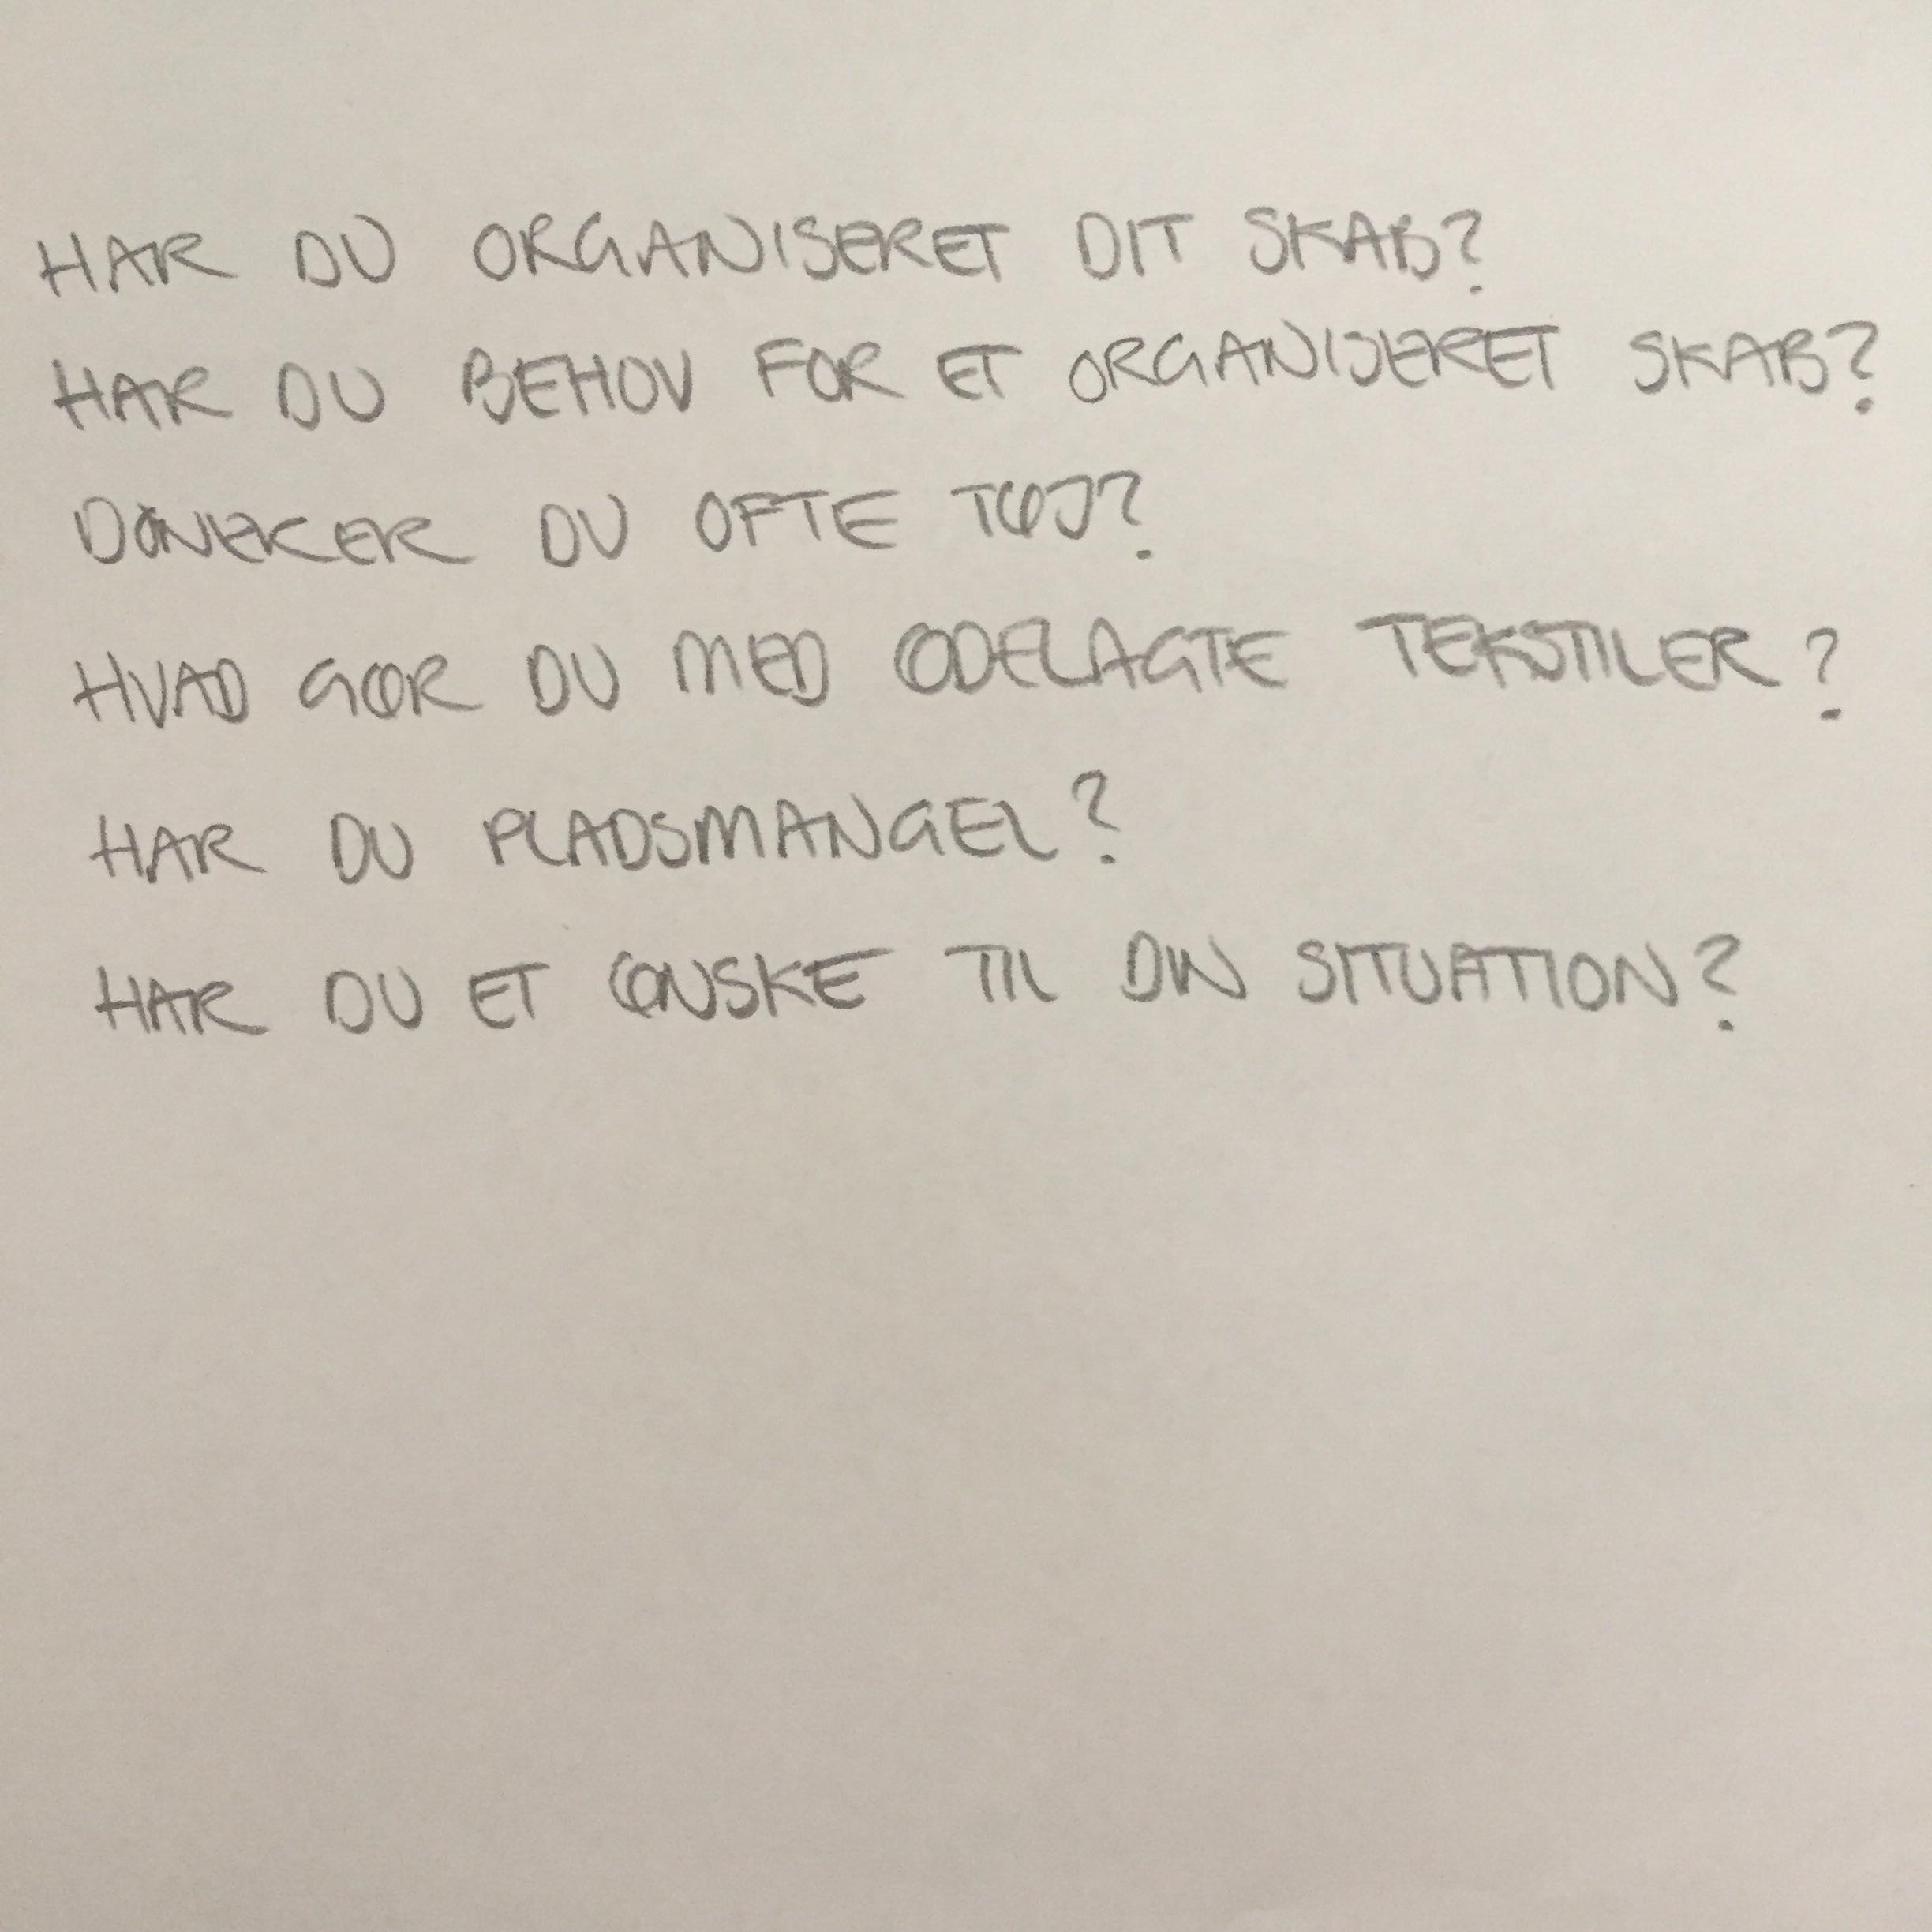 HAR DU ORGANISERET DIT SKAB?
HAR DU BEHOV FOR ET ORGANISERET SKAB?
DONERER DU OFTE TØJ?
HVAD GØR DU MED ØDELAGTE TEKSTILER?
HAR DU PLADSMANGEL?
HAR DU ET ØNSKE TIL DIN SITUATION?